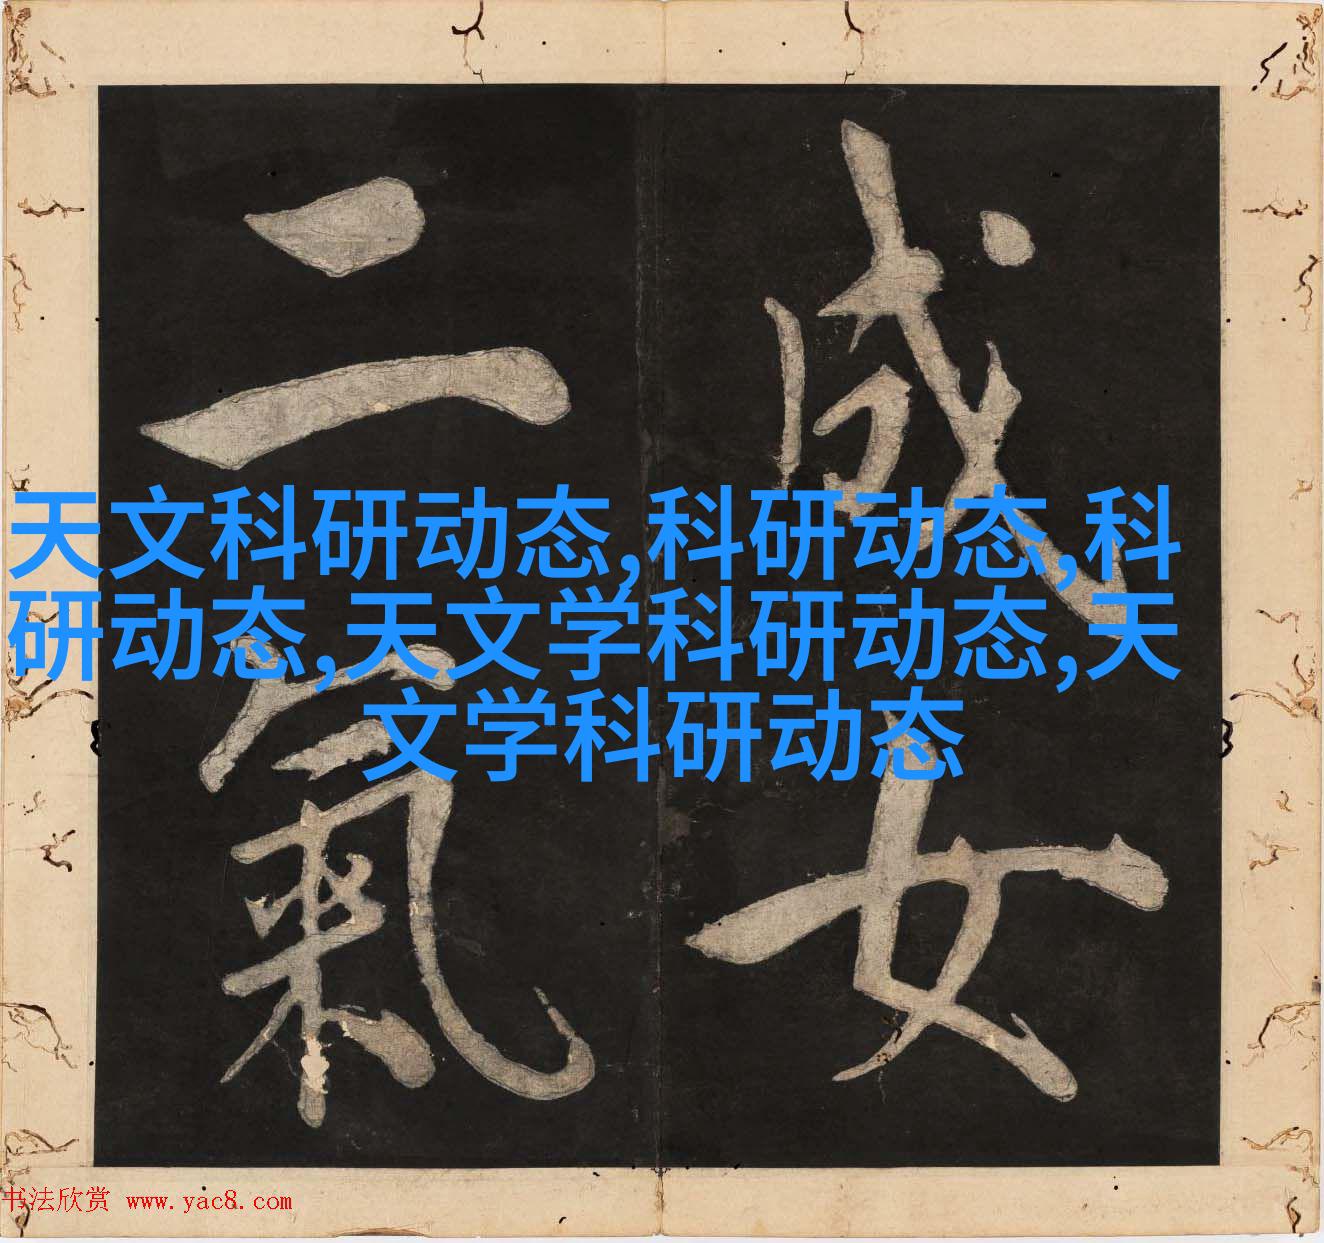 成女
二氣
天文科研动态,科研动态,科
研动态,天文学科研动态,天
文学科研动态
书法欣赏 www.yac8.com